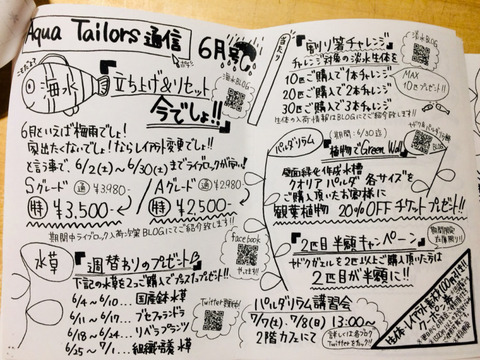 Aqua Tailors 通信
6月号
海水
立ち上げ&リセット
今でしょ!!
淡水BLOG
6月といえば梅雨でしょ!
家出たくないでしょ!ならレイアウト変更でしょ!!
と言う事で、6/2(土)〜6/30(土)までライブロックが安い!
Sグレード 通 ¥3,980-
特 ¥3,500-
Aグレード 通 ¥2,980-
特 ¥2,500-
期間中ライブロック入荷次第BLOGにてご紹介致します!!
facebook
やってます!!
水草
週替わりのプレゼント
下記の水草を2つご購入でプラス1プレゼント!!
6/4〜6/10... 国産鉢水草
6/11〜6/17... ブセファランドラ
6/18〜6/24... リベラプランツ
6/25〜7/1... 組織培養水草
Twitter
『割り箸チャレンジ』
チャレンジ対象の淡水生体を
10匹ご購入で1本チャレンジ
20匹ご購入で2本チャレンジ
30匹ご購入で3本チャレンジ
MAX
10匹プレゼント!!
生体の入荷情報はBLOGにてご紹介致します!
パルダリウム
(期間:6/30迄)
『植物でGreen Wall』
BLOG
壁面緑化作成水槽
クオリア パルダ 各サイズを
ご購入頂いたお客様に
観葉植物 20%OFFチケットプレゼント!!
『2匹目半額キャンペーン』
ヤドクガエルを2匹以上ご購入頂いた方は
2匹目が半額に!!
パルダリウム講習会
7/7(土)、7/8(日) 13:00〜
2階カフェにて
詳しくは各ブログ
Twitterをcheck!!